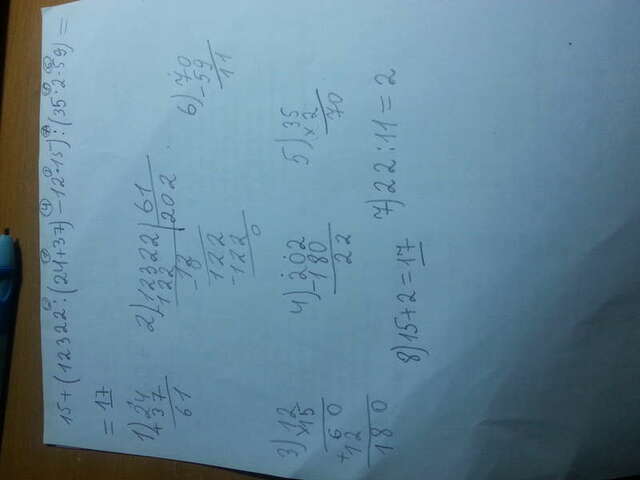 15+(12322:(24+37)-12·15):(35·2-59)=
=17
1) 24
+37
61
2) 12322 | 61
-122 | 202
12
-0
122
-122
0
6) 70
-59
11
3) 12
×15
60
+12
180
4) 202
-180
22
5) 35
×2
70
7) 22:11=2
8) 15+2=17